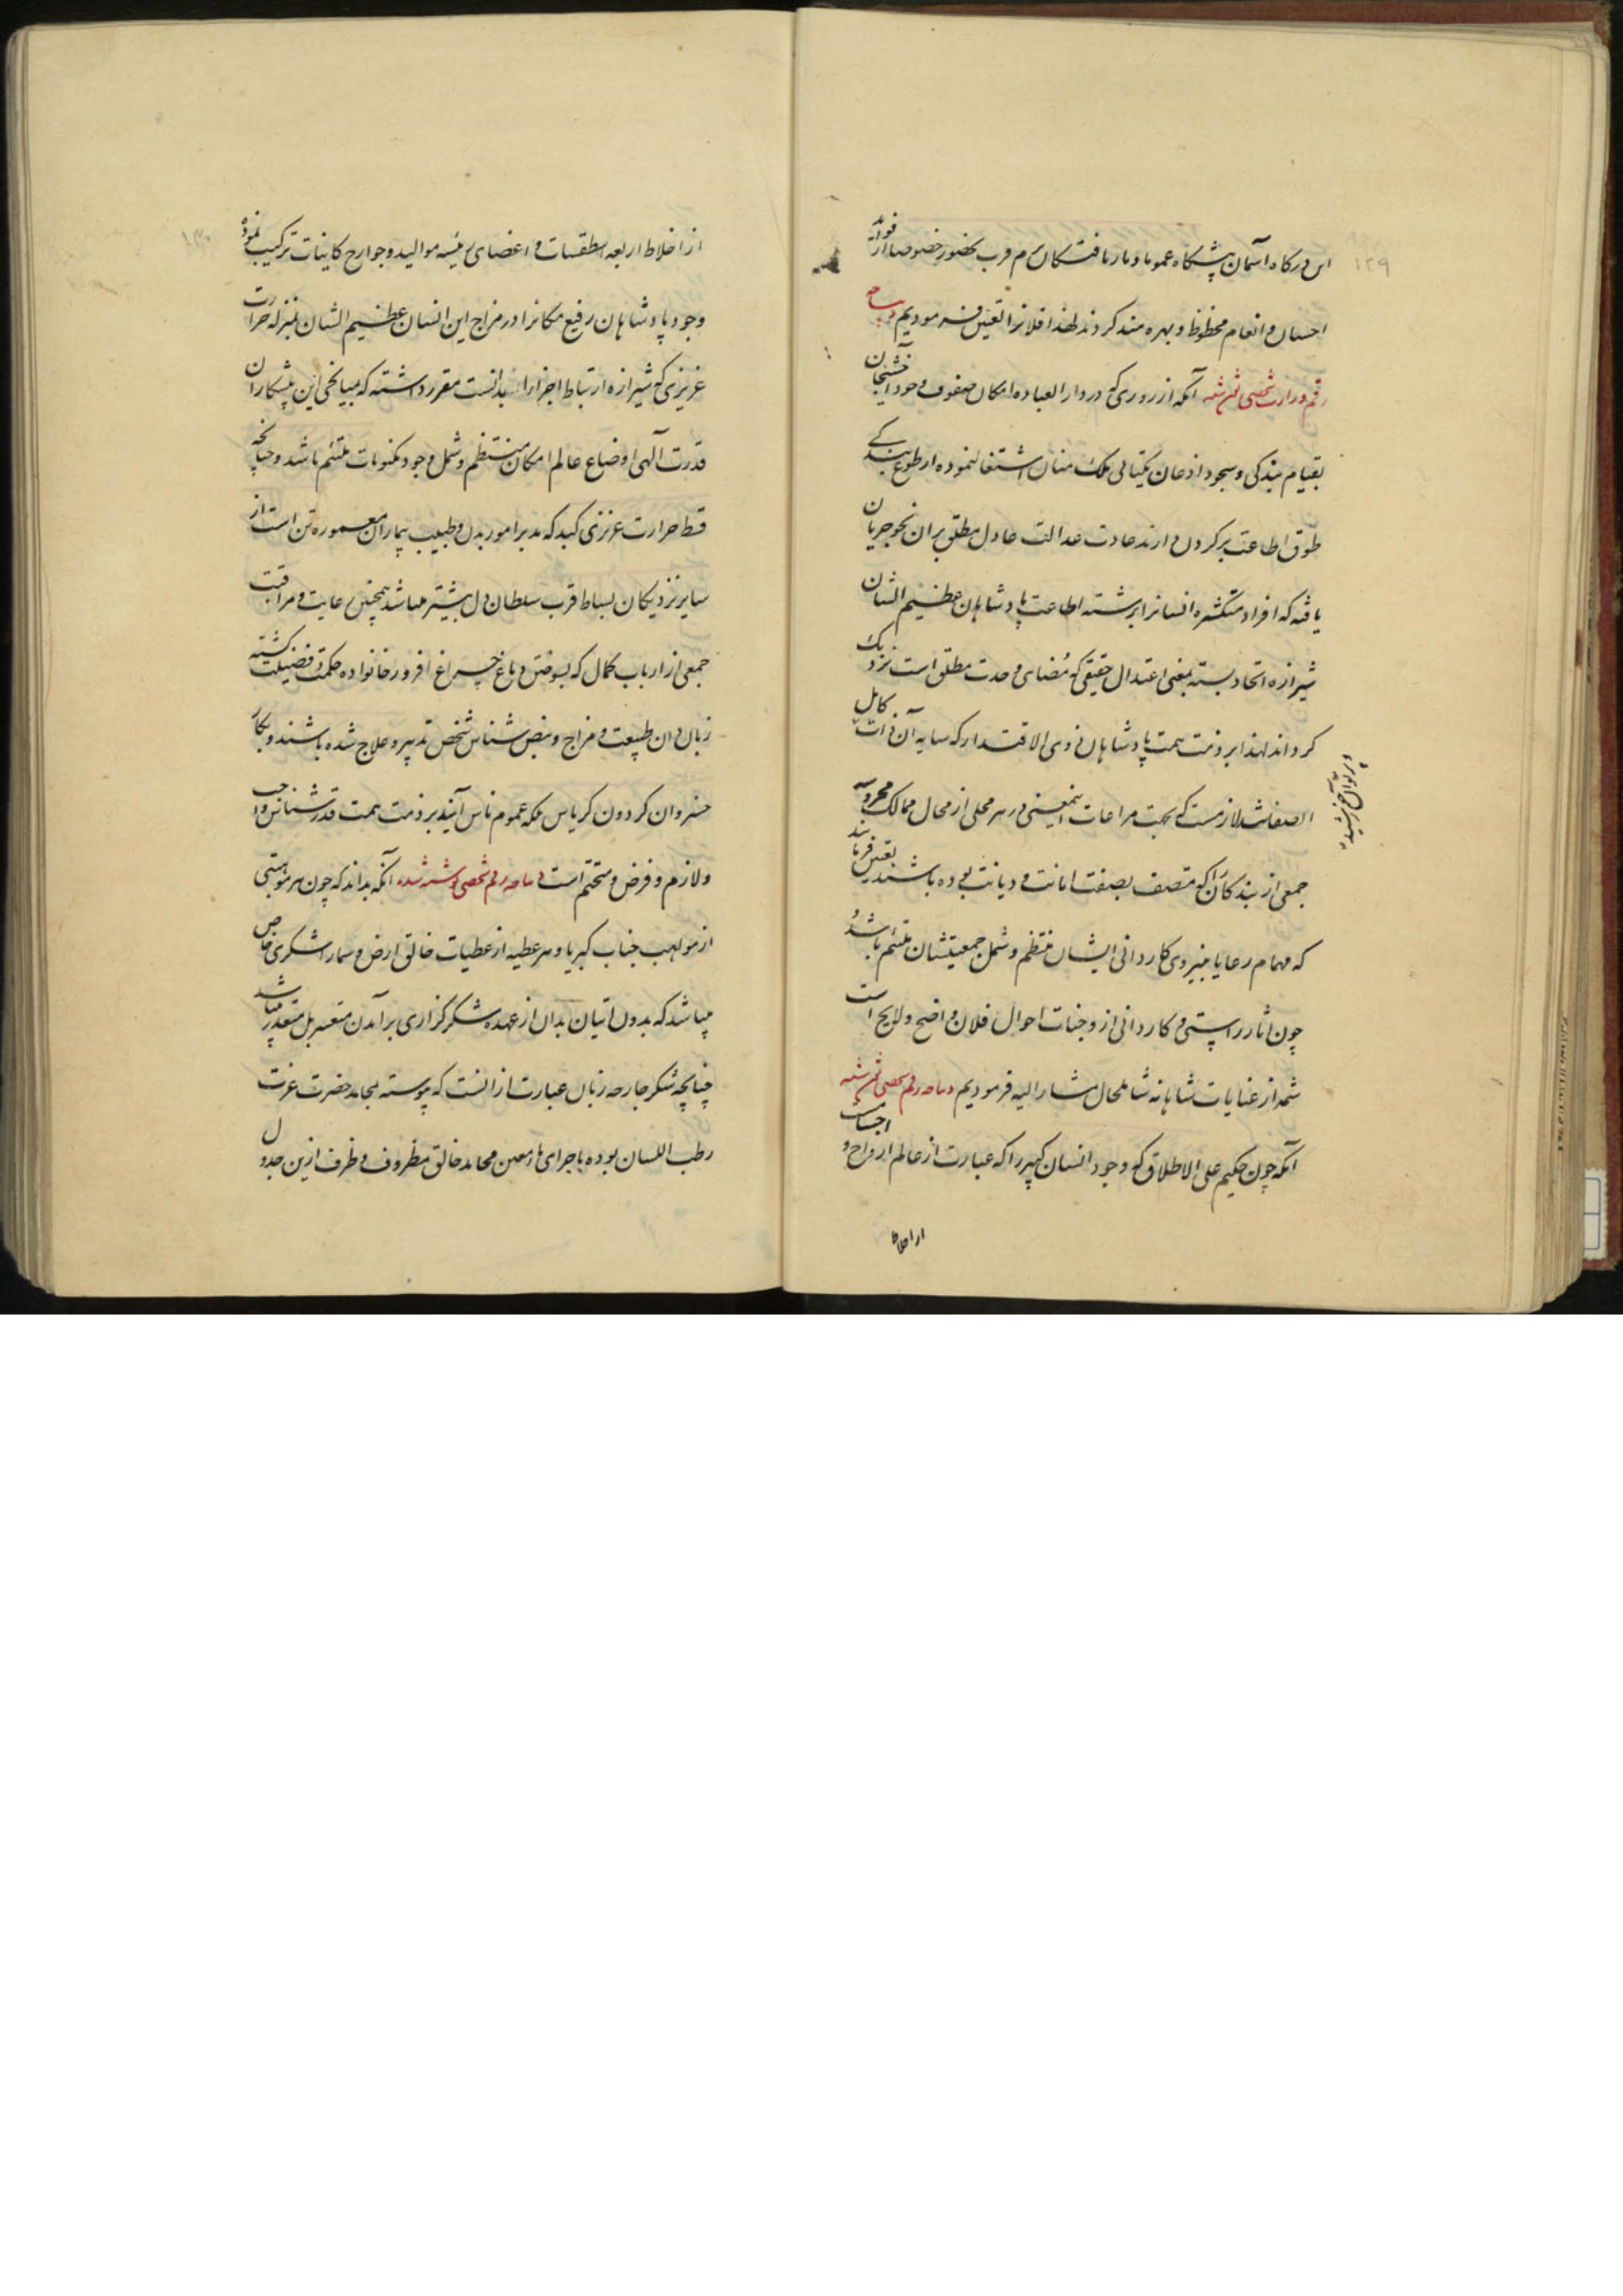 ۱۲۹
این درگاه آسمان پیشگاه عموما و بار یافتگان بزم قرب حضور خصوصا از فواید
احسان و انعام محظوظ و بهره مند گردند لهذا فلانرا تعیین فرمودیم دیباچه
رقم وزارت شخصی نوشته آنکه از روزی که در دار العباده امکان صفوف وجود آخشیجان
بقیام بندگی و سجود اذعان یکتائی ملک منان اشتغال نموده از طوع بندگی
طوق اطاعت بر گردن دارند عادت عدالت عادل مطلق بر آن نحو جریان
یافته که افراد متکثره انسانرا برشته اطاعت پادشاهان عظیم الشان
شیرازه اتحاد بسته بمغنی اعتدال حقیقی که مضای وحدت مطلق است نزدیک
گرداند لهذا بر ذمت همت پادشاهان ذوی الاقتدار که سایه آن ذات کامل
الصفاتند لازمست که بجهت مراعات اینمعنی در هر محلی از محال ممالک محروسه
جمعی از بندگان را که متصف بصفت امانت و دیانت بوده باشند تعیین فرمایند
که مهمام رعایا بنیروی کاردانی ایشان منتظم و شمل جمعیتشان ملتئم باشد
چون آثار راستی و کاردانی از وجنات احوال فلان واضح و لایح است
شمه از عنایات شاهانه شاملحال مشارالیه فرمودیم دیباچه رقم شخصی نوشته
آنکه چون حکیم علی الاطلاق که وجود انسان کبیر را که عبارت از عالم ارواح و اجسامست
از اخلاط
از اخلاط اربعه اسطقسات و اعضای رئیسه موالید و جوارح کاینات ترکیب نموده
وجود پادشاهان رفیع مکانرا در مزاج این انسان عظیم الشان بمنزله حرارت
غریزی که شیرازه ارتباط اجزا را بدانست مقرر داشته که بمیانجی این پیشکاران
قدرت آلهی اوضاع عالم امکان منتظم و شمل وجود مکنونات ملتئم باشد و چنانچه
قسط حرارت غریزی کبد که مدبر امور بدن و طبیب بیماران معموره تن است از
سایر نزدیکان بساط قرب سلطان دل بیشتر میباشد همچنین رعایت و مراقبت
جمعی از ارباب کمال که بسوختن دماغ چراغ افروز خانواده حکمت و فضیلت گشته
زبان دان طبیعت و مزاج و نبض شناس شخص تدبیر و علاج شده باشند و بکار
خسروان گردون کریاس بلکه عموم ناس آیند بر ذمت همت قدر شناس واجب
و لازم و فرض و متحتم است دیباچه رقم شخصی نوشته شده آنکه بداند که چون هر موهبتی
از مواهب جناب کبریا و هر عطیه از عطیات خالق ارض و سما را شکری خاص
میباشد که بدون اتیان بدان از عهده شکرگزاری برآمدن متعسر بل متعذر میباشد
چنانچه شکر جارحه زبان عبارت از آنست که پیوسته بمحامد حضرت عزت
رطب اللسان بوده باجرای ماء معین محامد خالق مظروف و ظرف ازین جدول